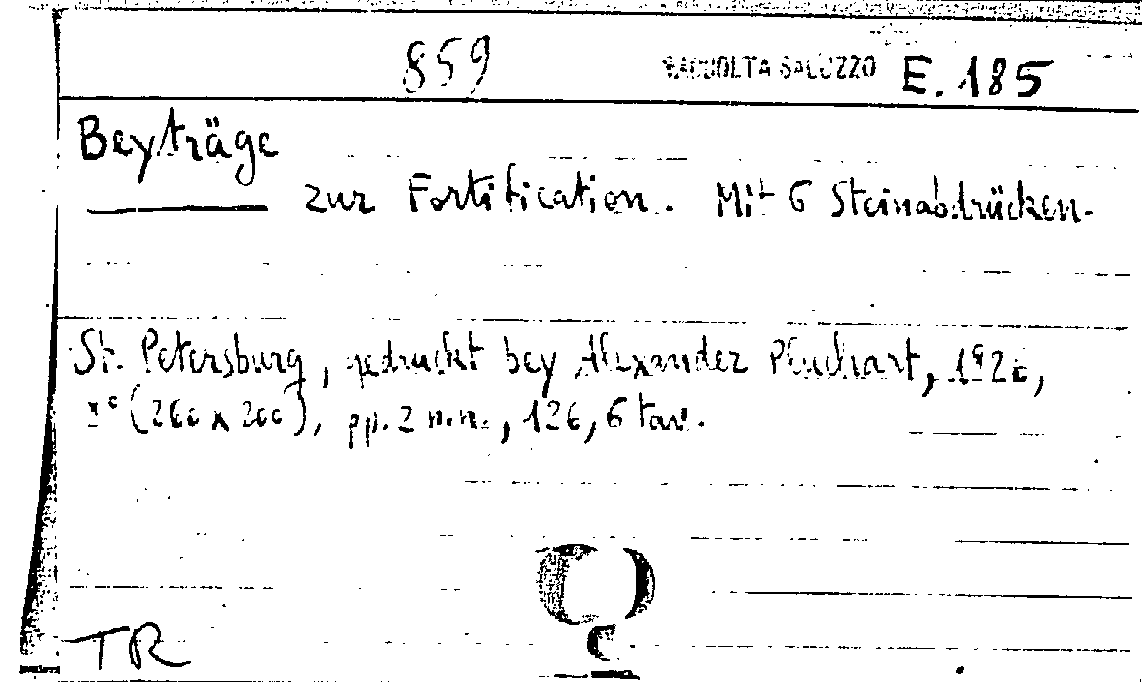 859 RACCOLTA SALUZZO E. 185
Beyträge
zur Fortification. Mit 6 Steinabdrücken.
St. Petersburg, gedruckt bey Alexander Pluchart,
(260 x 200), pp. 2 n.n., 126, 6 tav.
TR